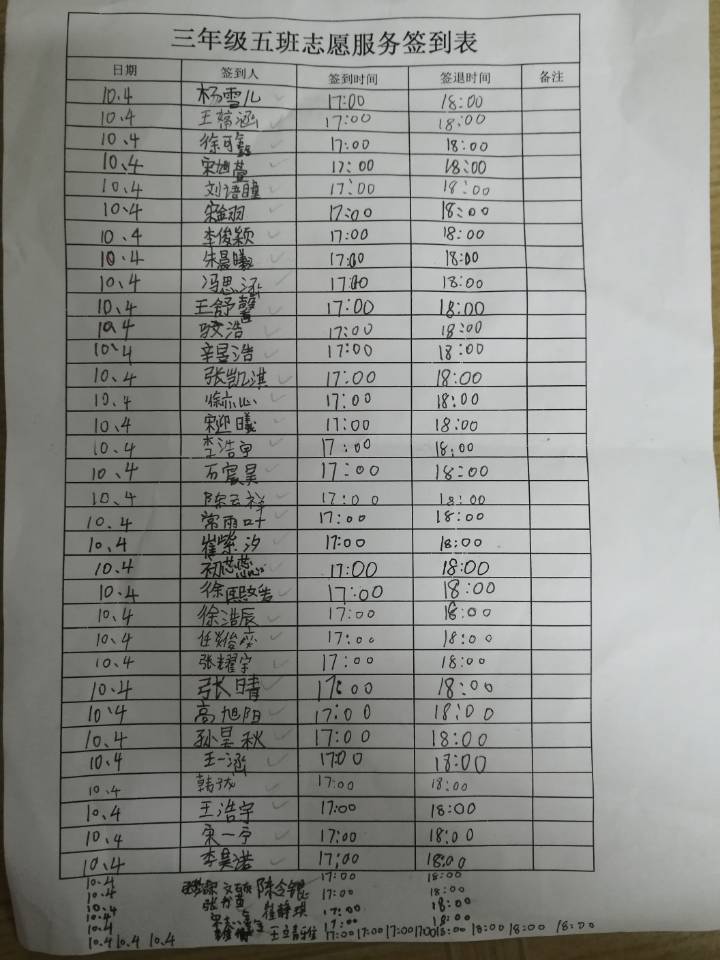 三年级五班志愿服务签到表
日期 签到人 签到时间 签退时间 备注
10.4 杨雪儿 17:00 18:00
10.4 王 涵 17:00 18:00
10.4 徐可鑫 17:00 18:00
10.4 宋 萱 17:00 18:00
10.4 刘语瞳 17:00 18:00
10.4 宋金羽 17:00 18:00
10.4 李俊颖 17:00 18:00
10.4 朱晨曦 17:00 18:00
10.4 冯思涵 17:00 18:00
10.4 王舒馨 17:00 18:00
10.4 浩 17:00 18:00
10.4 辛昱浩 17:00 18:00
10.4 张凯淇 17:00 18:00
10.4 徐亦心 17:00 18:00
10.4 宋迎曦 17:00 18:00
10.4 李浩 17:00 18:00
10.4 万震昊 17:00 18:00
10.4 陈云祥 17:00 18:00
10.4 常雨叶 17:00 18:00
10.4 崔紫汐 17:00 18:00
10.4 初蕊蕊 17:00 18:00
10.4 徐熙皓 17:00 18:00
10.4 徐浩辰 17:00 18:00
10.4 任 17:00 18:00
10.4 张耀宇 17:00 18:00
10.4 张晴 17:00 18:00
10.4 高旭阳 17:00 18:00
10.4 孙昊秋 17:00 18:00
10.4 王一涵 17:00 18:00
10.4 韩 17:00 18:00
10.4 王浩宇 17:00 18:00
10.4 宋一宁 17:00 18:00
10.4 李昊诺 17:00 18:00
10.4 17:00 18:00
10.4 陈含 17:00 18:00
10.4 崔静琪 17:00 18:00
10.4 17:00 18:00
10.4 10.4 10.4 王 雅 17:00 17:00 17:00 17:00 18:00 18:00 18:00 18:00